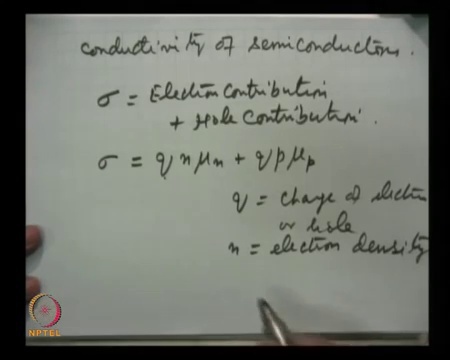 conductivity of semiconductors.
σ = Electron contribution
+ Hole contribution.
σ = q n μn + q p μp
q = charge of electron
or hole
n = electron density
NPTEL